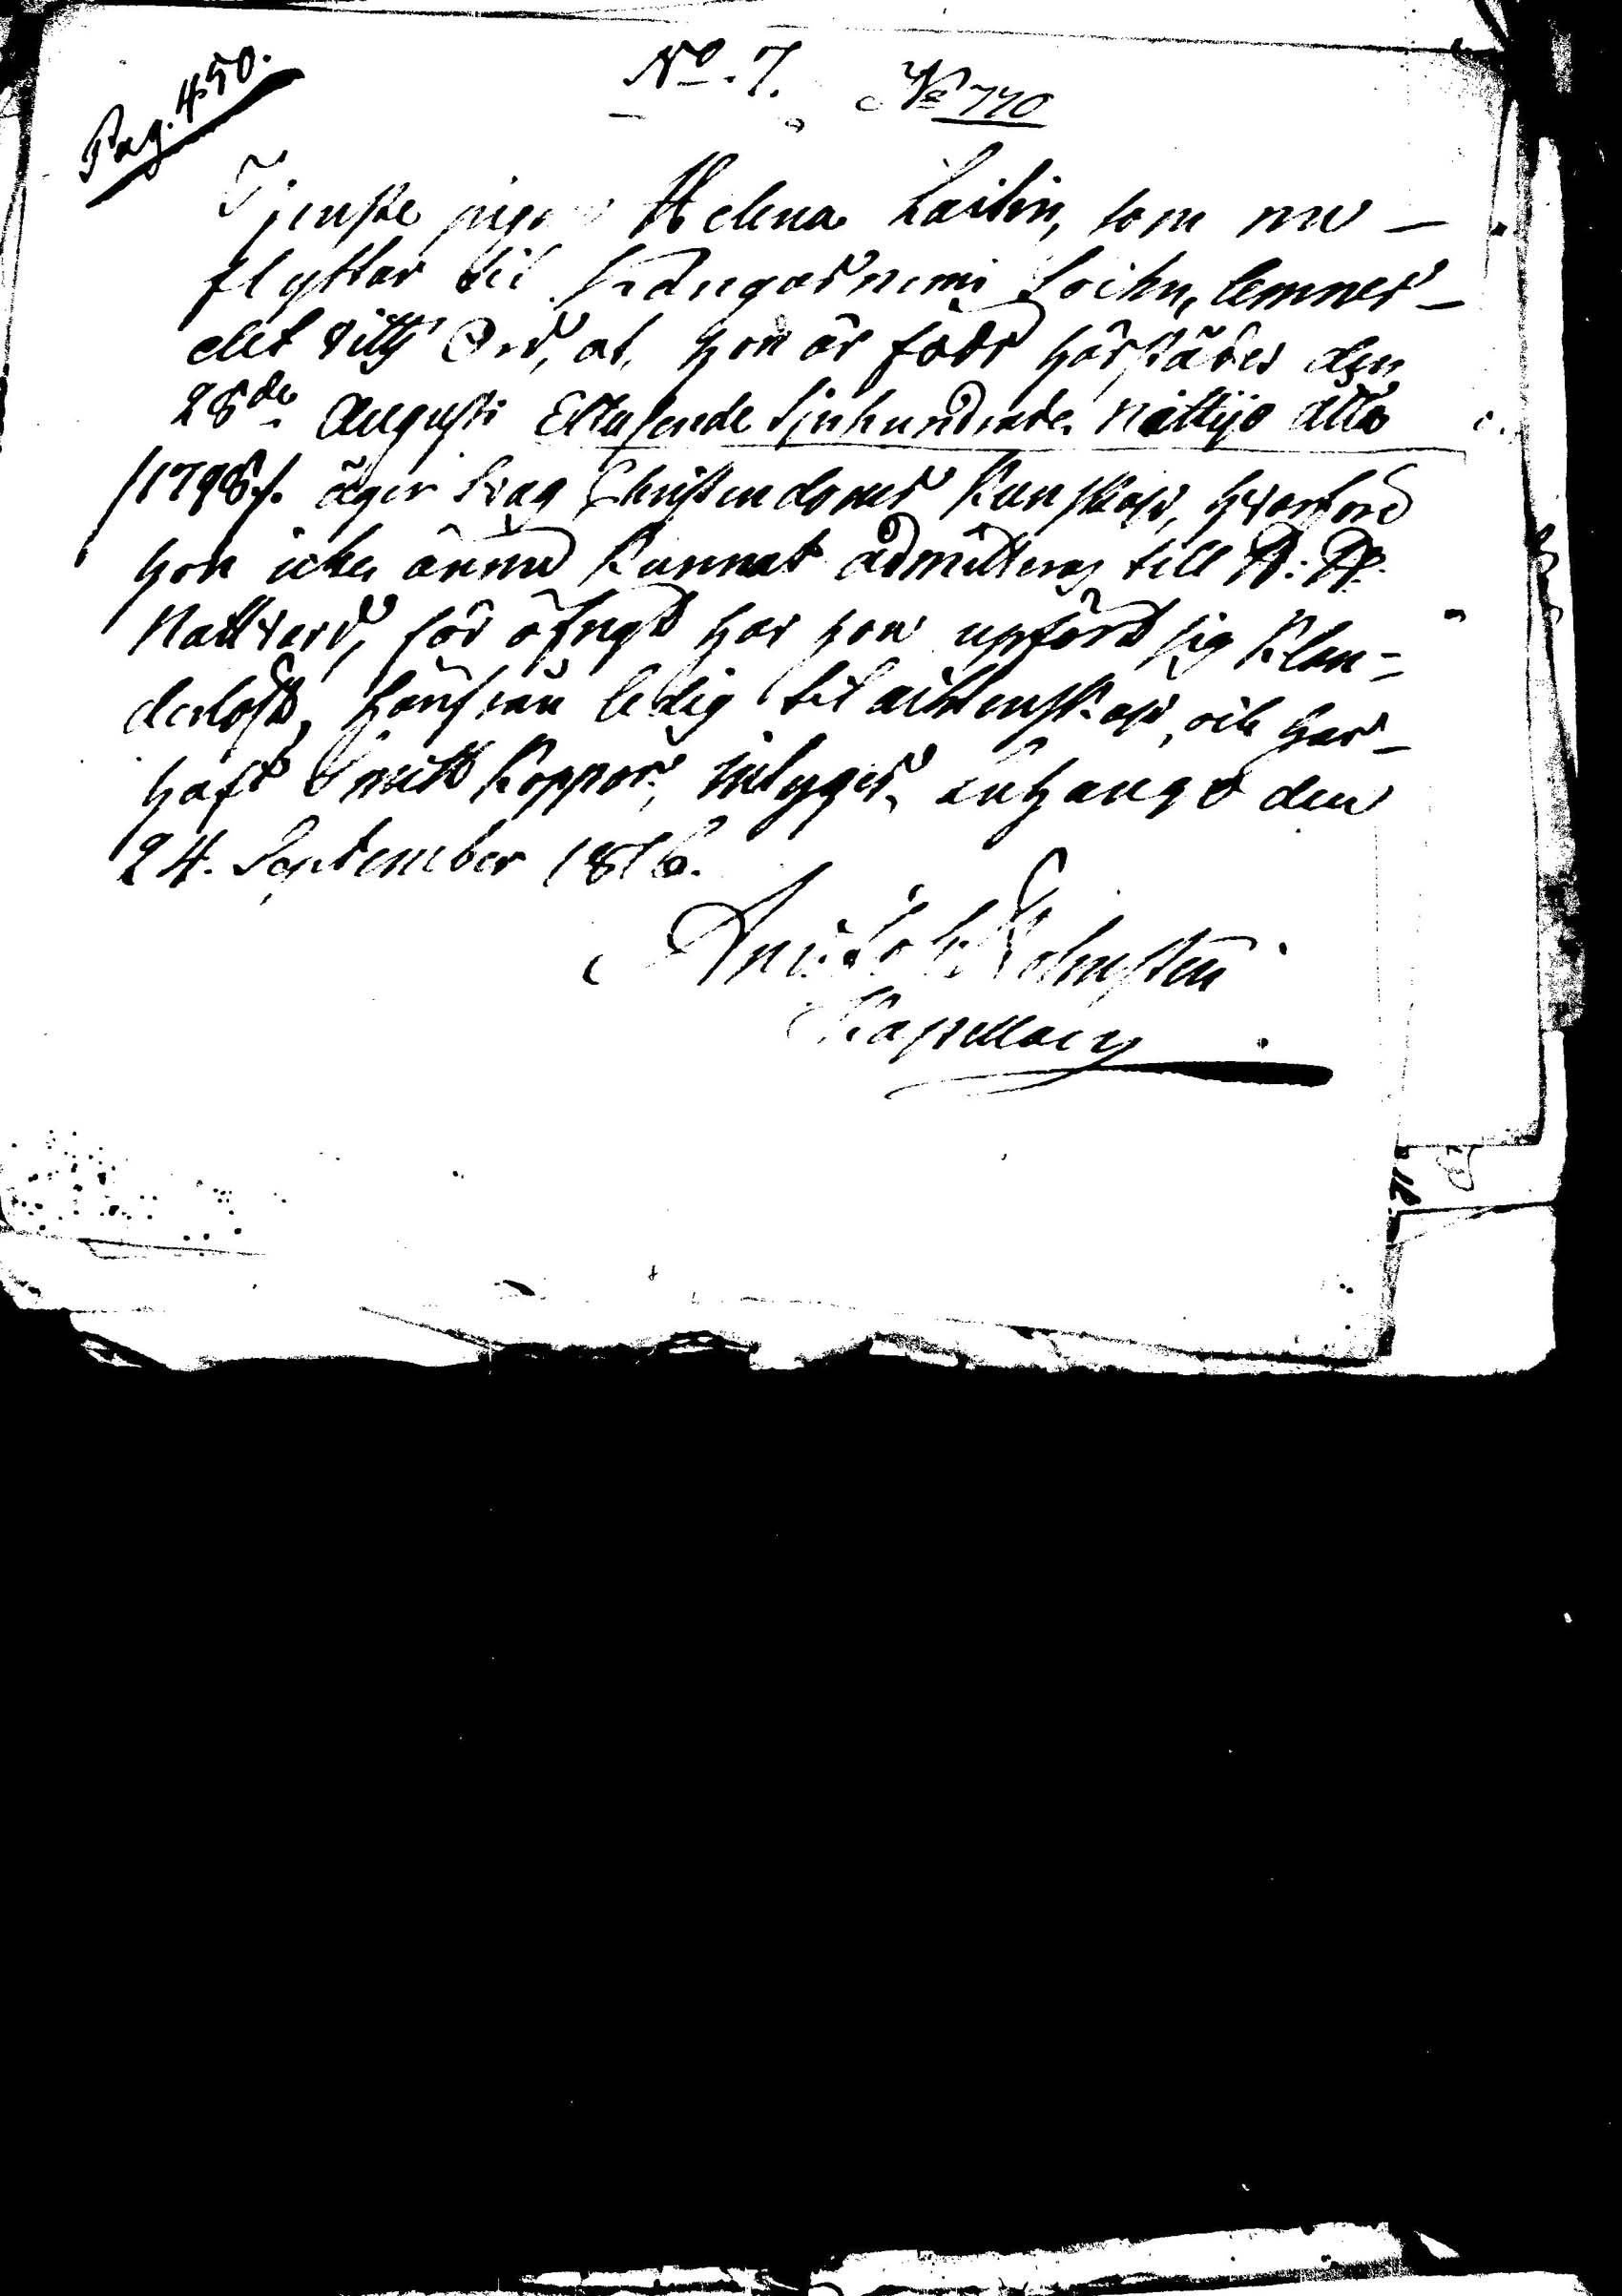 Pag. 450.
No. 7. No 770
Tjenste pigan Helena Laitin, som nu
flyttar til Kangasniemi Sockn, lemnes
det vittes Ord, at hon är född härstädes den
28de Augusti Ettusende Sjuhundrade Nittijo åtta
/1798/. äger svag Christendoms Kunskap, hvarföre
hon icke ännu kunnat admitteras till H: H:
Nattvard, för öfrigt har hon upfördt sig klan-
derlöst, härifrån ledig til ächtenskap, och har
haft Smitt koppor, intygas, den
24. September 1816.
Kapellan